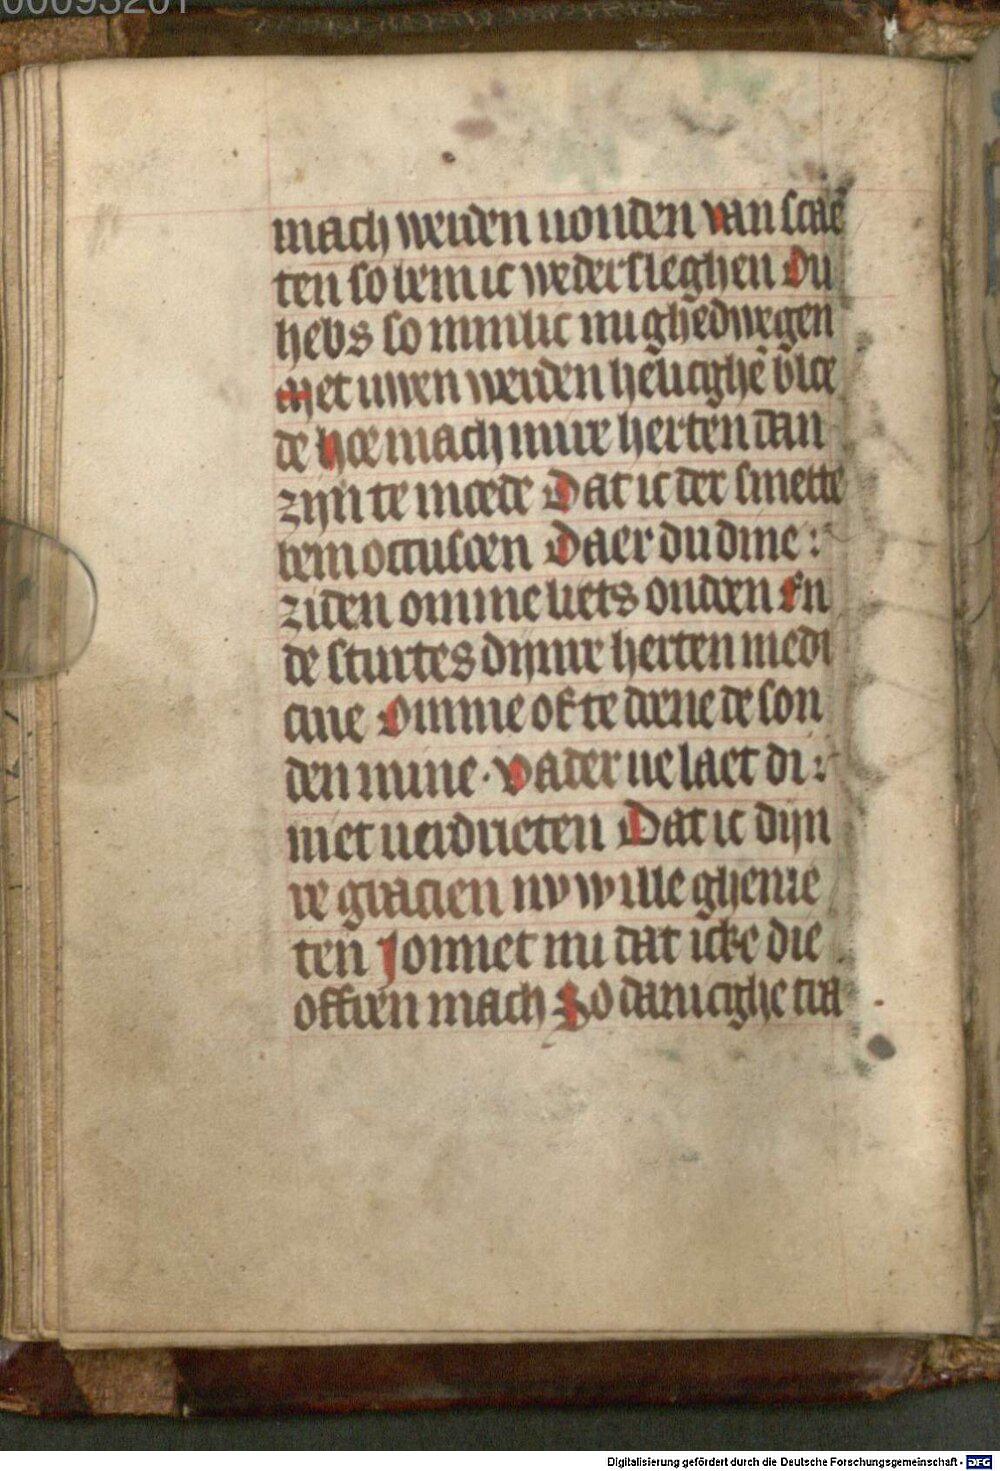 00093201
mach werden vonden van scae
ten so bem ic weder sleghen Du
hebs so minlic mi ghedwegen
met uwen werden heilighē vloe
de hoe mach mire herten dan
zijn te moede Dat ic der smette
bem ontuscen Daer du dine :
ziden omme liets ontoen En
de sturtes dijnre herten medi
cine Omme of te doene de son
den mine · vader ne laet di :
niet verdrieten Dat ic dijn
re gracien nv wille ghenie
ten Jonnet mi dat icke die
offren mach So danicighe tra
Digitalisierung gefördert durch die Deutsche Forschungsgemeinschaft - DFG